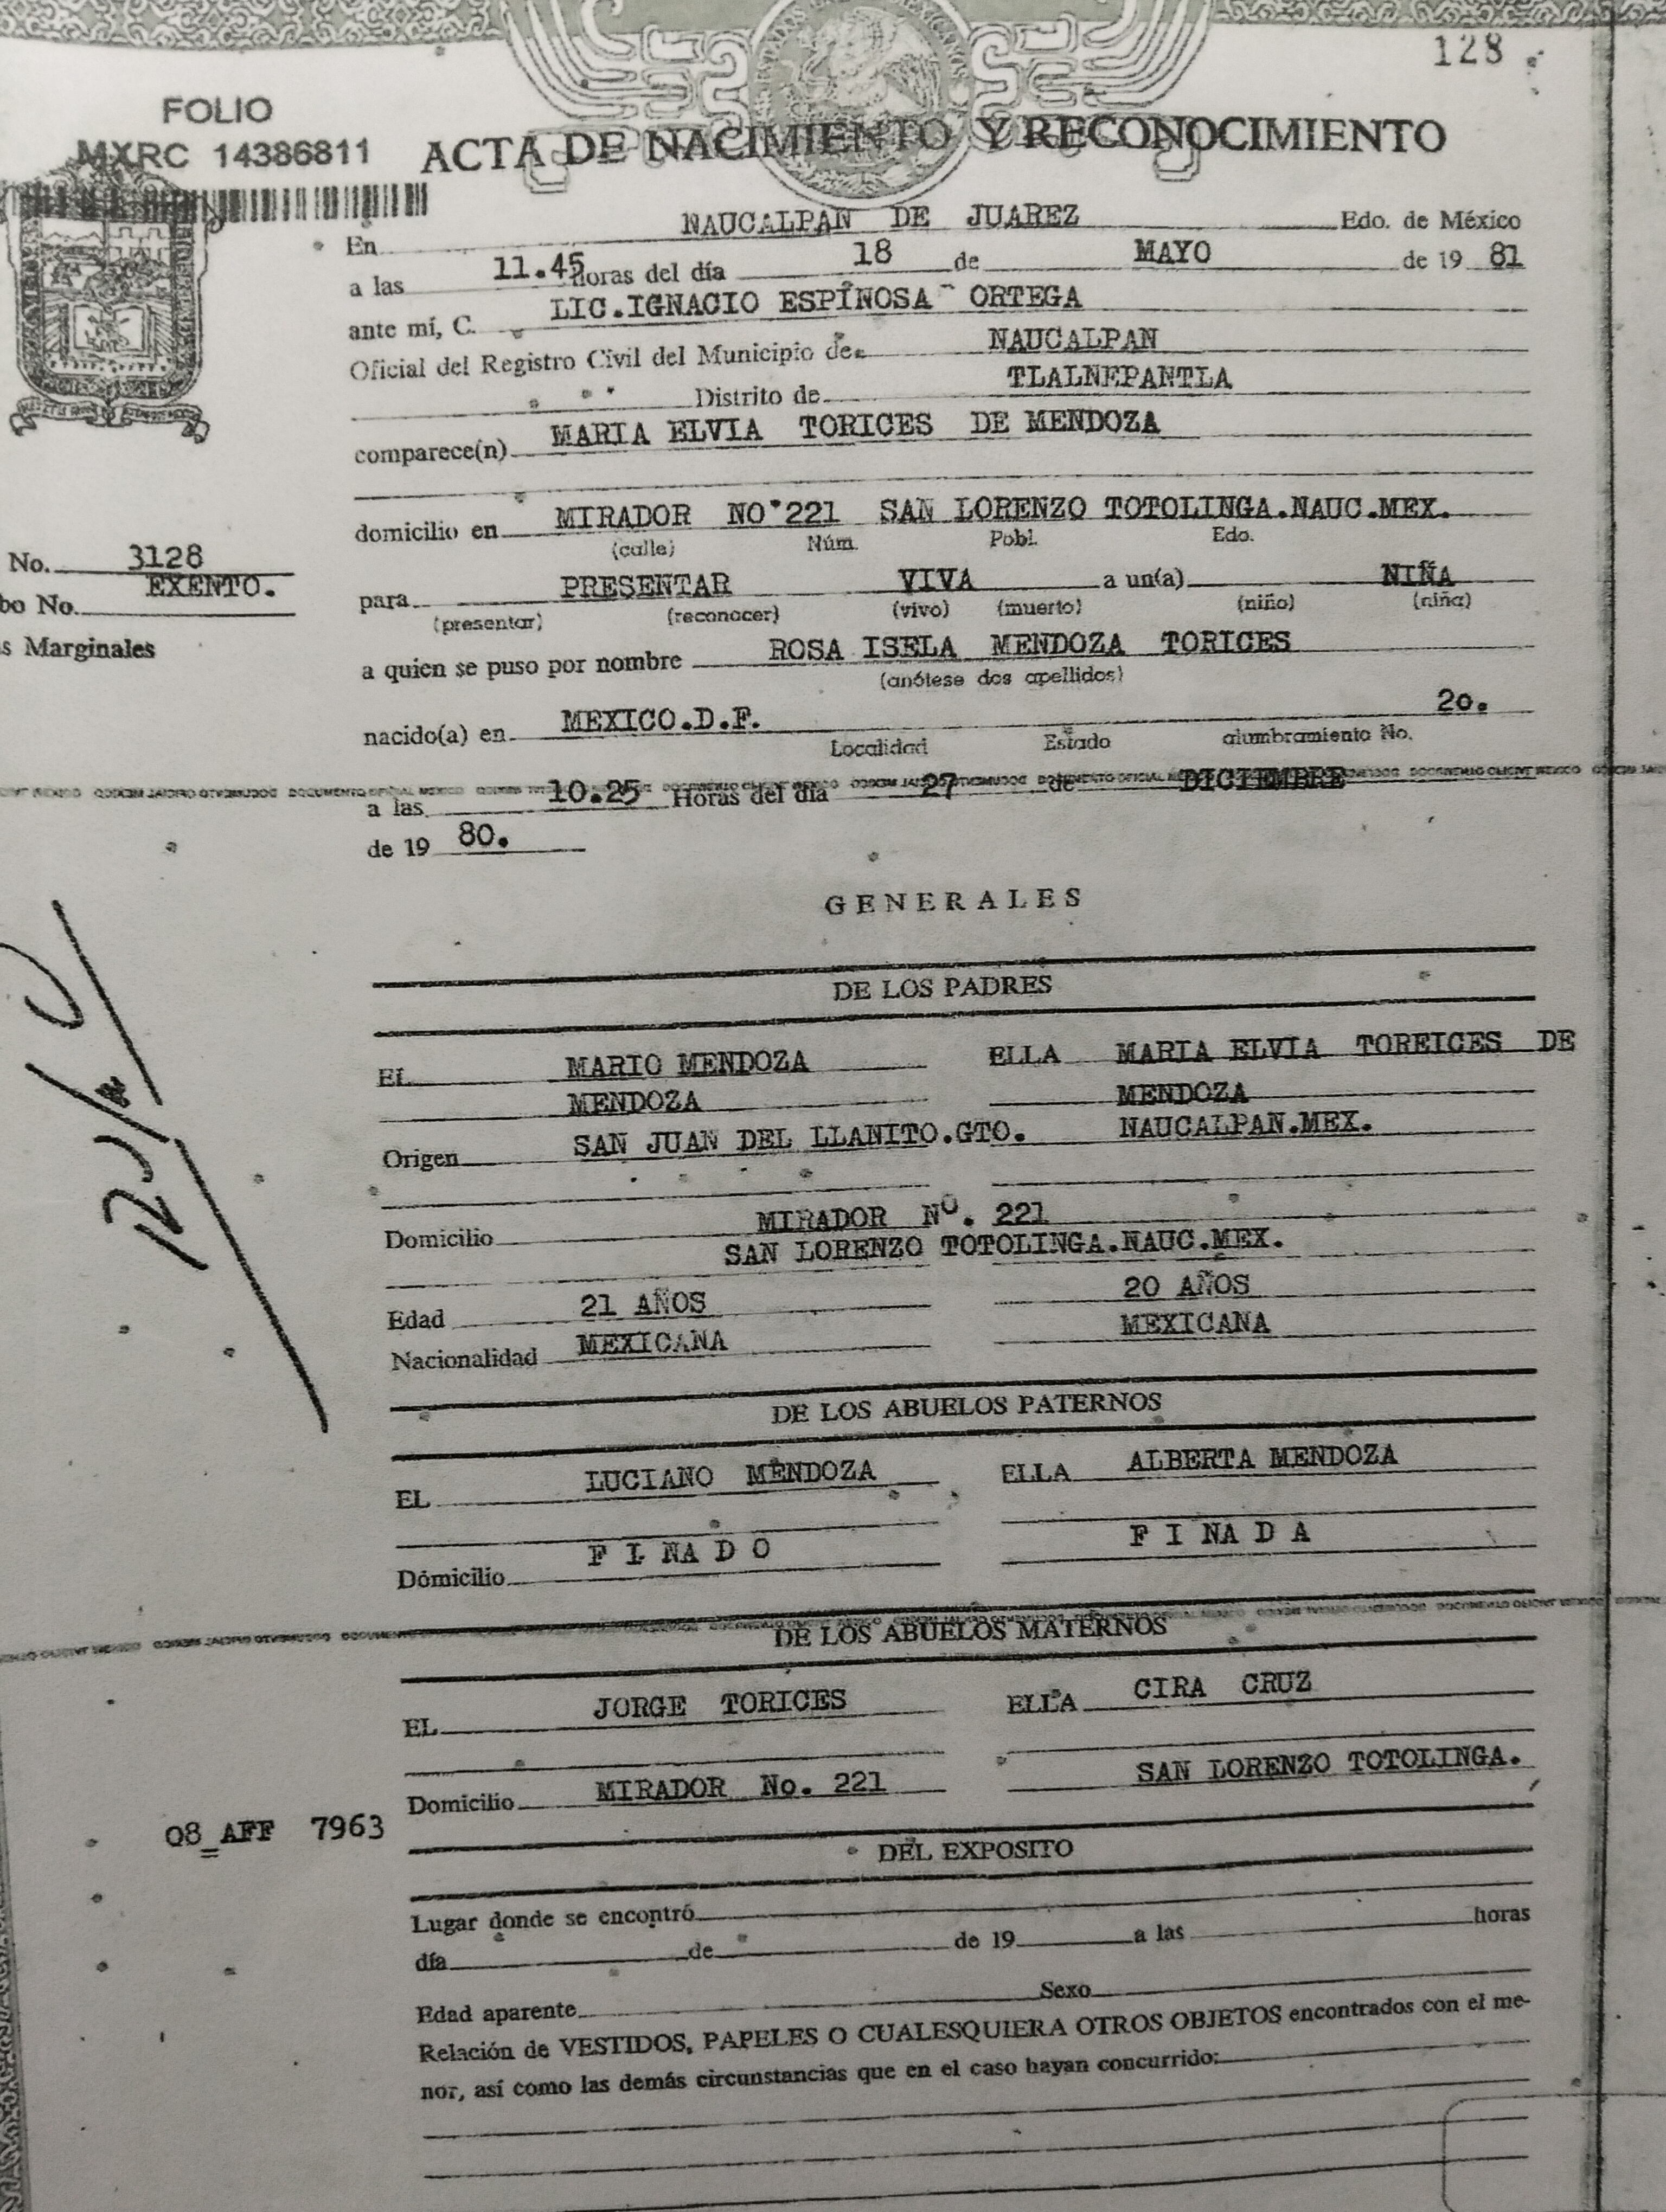 128
FOLIO
MXRC 14386811
ACTA DE NACIMIENTO Y RECONOCIMIENTO
En NAUCALPAN DE JUAREZ Edo. de México
a las 11.45 horas del día 18 de MAYO de 19 81
ante mí, C. LIC.IGNACIO ESPINOSA ORTEGA
Oficial del Registro Civil del Municipio de NAUCALPAN
Distrito de TLALNEPANTLA
comparece(n) MARIA ELVIA TORICES DE MENDOZA
domicilio en MIRADOR NO.221 SAN LORENZO TOTOLINGA.NAUC.MEX.
(calle) Núm. Pobl. Edo.
No. 3128
bo No. EXENTO.
para PRESENTAR VIVA a un(a) NIÑA
(presentar) (reconocer) (vivo) (muerto) (niño) (niña)
s Marginales
a quien se puso por nombre ROSA ISELA MENDOZA TORICES
(anótese dos apellidos)
nacido(a) en MEXICO.D.F. 2o.
Localidad Estado alumbramiento No.
a las 10.25 Horas del día 27 de DICIEMBRE
de 19 80.
GENERALES
DE LOS PADRES
EL MARIO MENDOZA ELLA MARIA ELVIA TOREICES DE
MENDOZA MENDOZA
Origen SAN JUAN DEL LLANITO.GTO. NAUCALPAN.MEX.
Domicilio MIRADOR Nº. 221
SAN LORENZO TOTOLINGA.NAUC.MEX.
Edad 21 AÑOS 20 AÑOS
Nacionalidad MEXICANA MEXICANA
DE LOS ABUELOS PATERNOS
EL LUCIANO MENDOZA ELLA ALBERTA MENDOZA
Domicilio F I NA D O F I NA D A
DE LOS ABUELOS MATERNOS
EL JORGE TORICES ELLA CIRA CRUZ
Domicilio MIRADOR No. 221 SAN LORENZO TOTOLINGA.
08 AFF 7963
DEL EXPOSITO
Lugar donde se encontró
día de de 19 a las horas
Edad aparente Sexo
Relación de VESTIDOS, PAPELES O CUALESQUIERA OTROS OBJETOS encontrados con el me-
nor, así como las demás circunstancias que en el caso hayan concurrido: